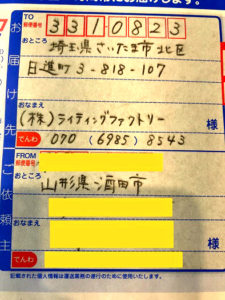 TO
郵便番号
331-0823
おところ
埼玉県さいたま市北区
日進町3-818-107
おなまえ
(株)ライティングファクトリー
様
でんわ 070 (6985) 8543
お届け先
FROM
郵便番号
おところ
山形県酒田市
おなまえ
様
でんわ
ご依頼主
記載された個人情報は運送業務の遂行のために使用いたします。